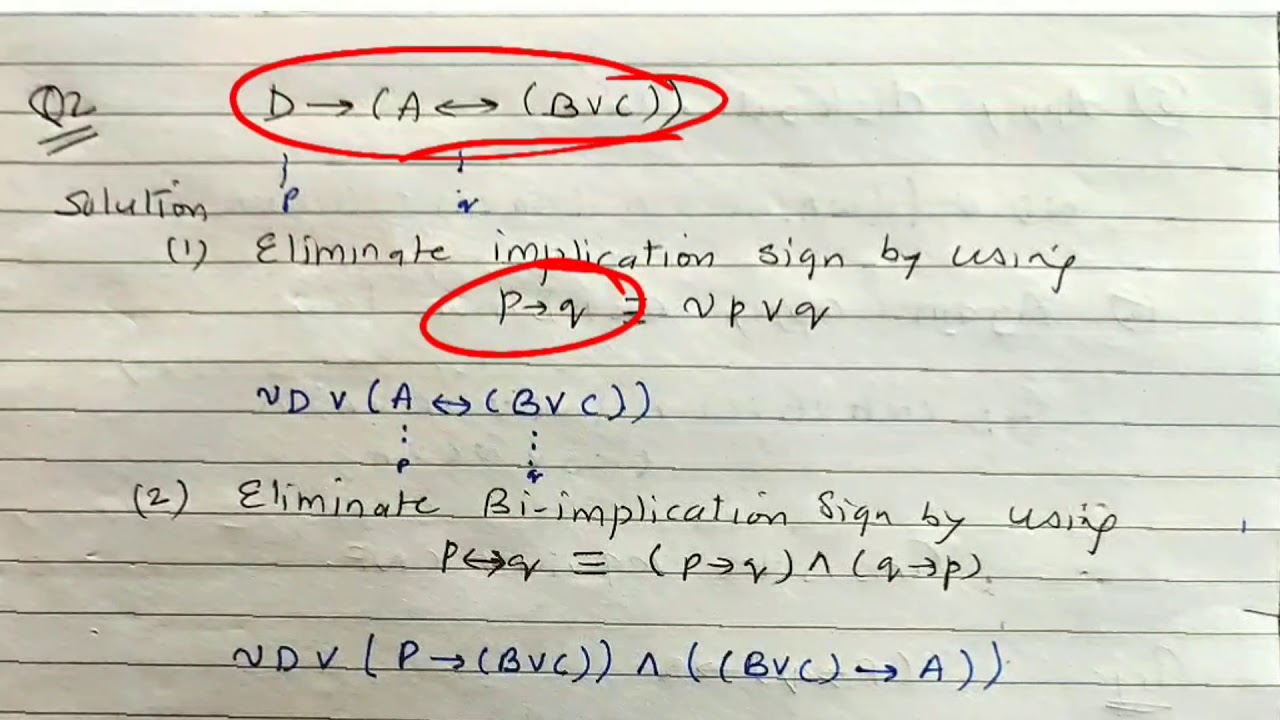 Q2 D → (A ↔ (B∨C))
p q
Solution
(1) Eliminate implication sign by using
p→q ≡ ~p∨q
~D∨(A ↔ (B∨C))
p q
(2) Eliminate Bi-implication Sign by using
p↔q ≡ (p→q)∧(q→p)
~D∨(P→(B∨C))∧((B∨C)→A))